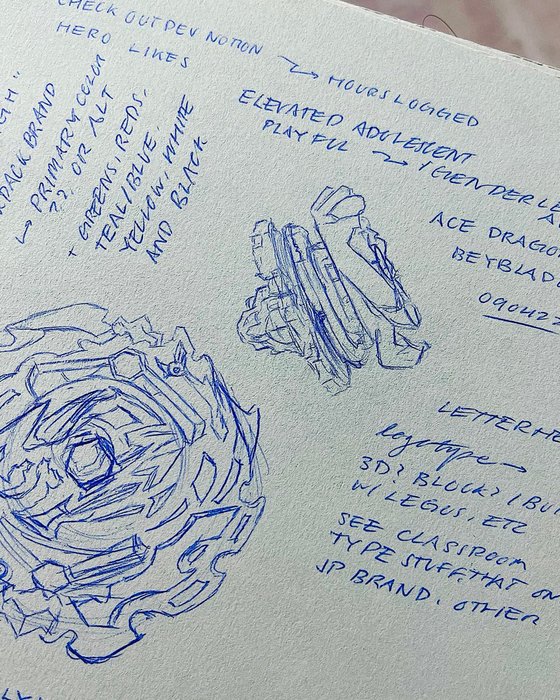 CHECK OUT DEV NOTION
↳ HOURS LOGGED
HERO LIKES
GH"
PACK BRAND
↳ PRIMARY COLOR
??. OR ALT
+ GREENS, REDS,
TEAL/BLUE,
YELLOW, WHITE
AND BLACK
ELEVATED ADOLESCENT
PLAYFUL
ACE DRAGO
BEYBLAD
LETTERHE
logotype →
3D? BLOCK?
W/ LEGOS, ETC
SEE CLASSROOM
TYPE STUFF THAT ON
JP BRAND. OTHER